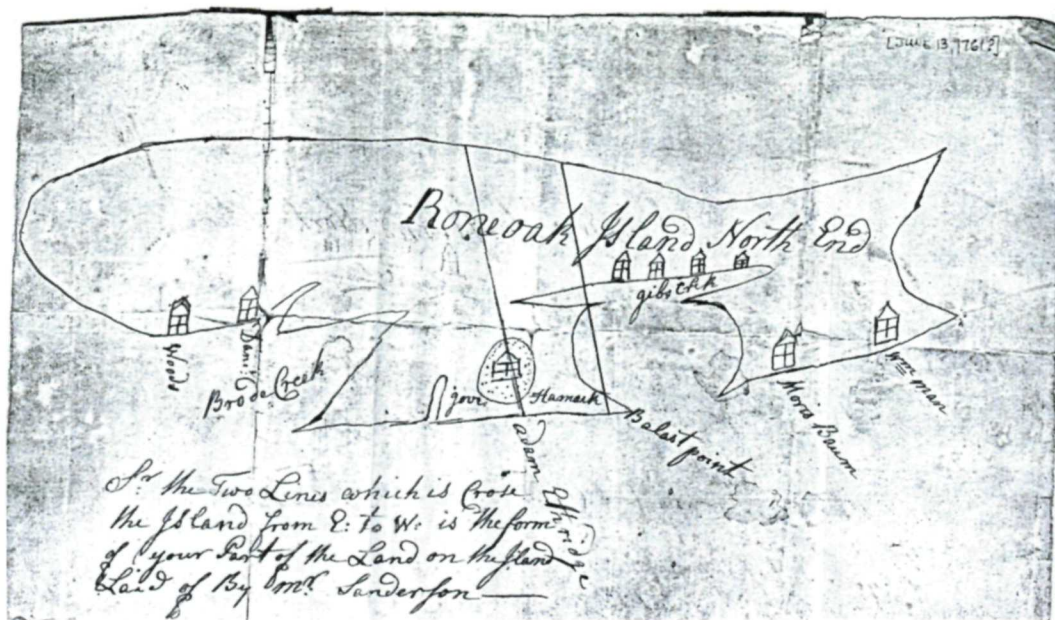 [JUNE 13, 1776?]
Roneoak Island North End
gibs Crik
Woods
Dani:
Brode Creek
gove Hamock
adam Ethridge
Balast point
Moris Baum
Wm man
Sr. the Two Lines which is Crose
the Island from E: to W: is the form
of your Part of the Land on the Iland
Laid of By mr. Sanderson